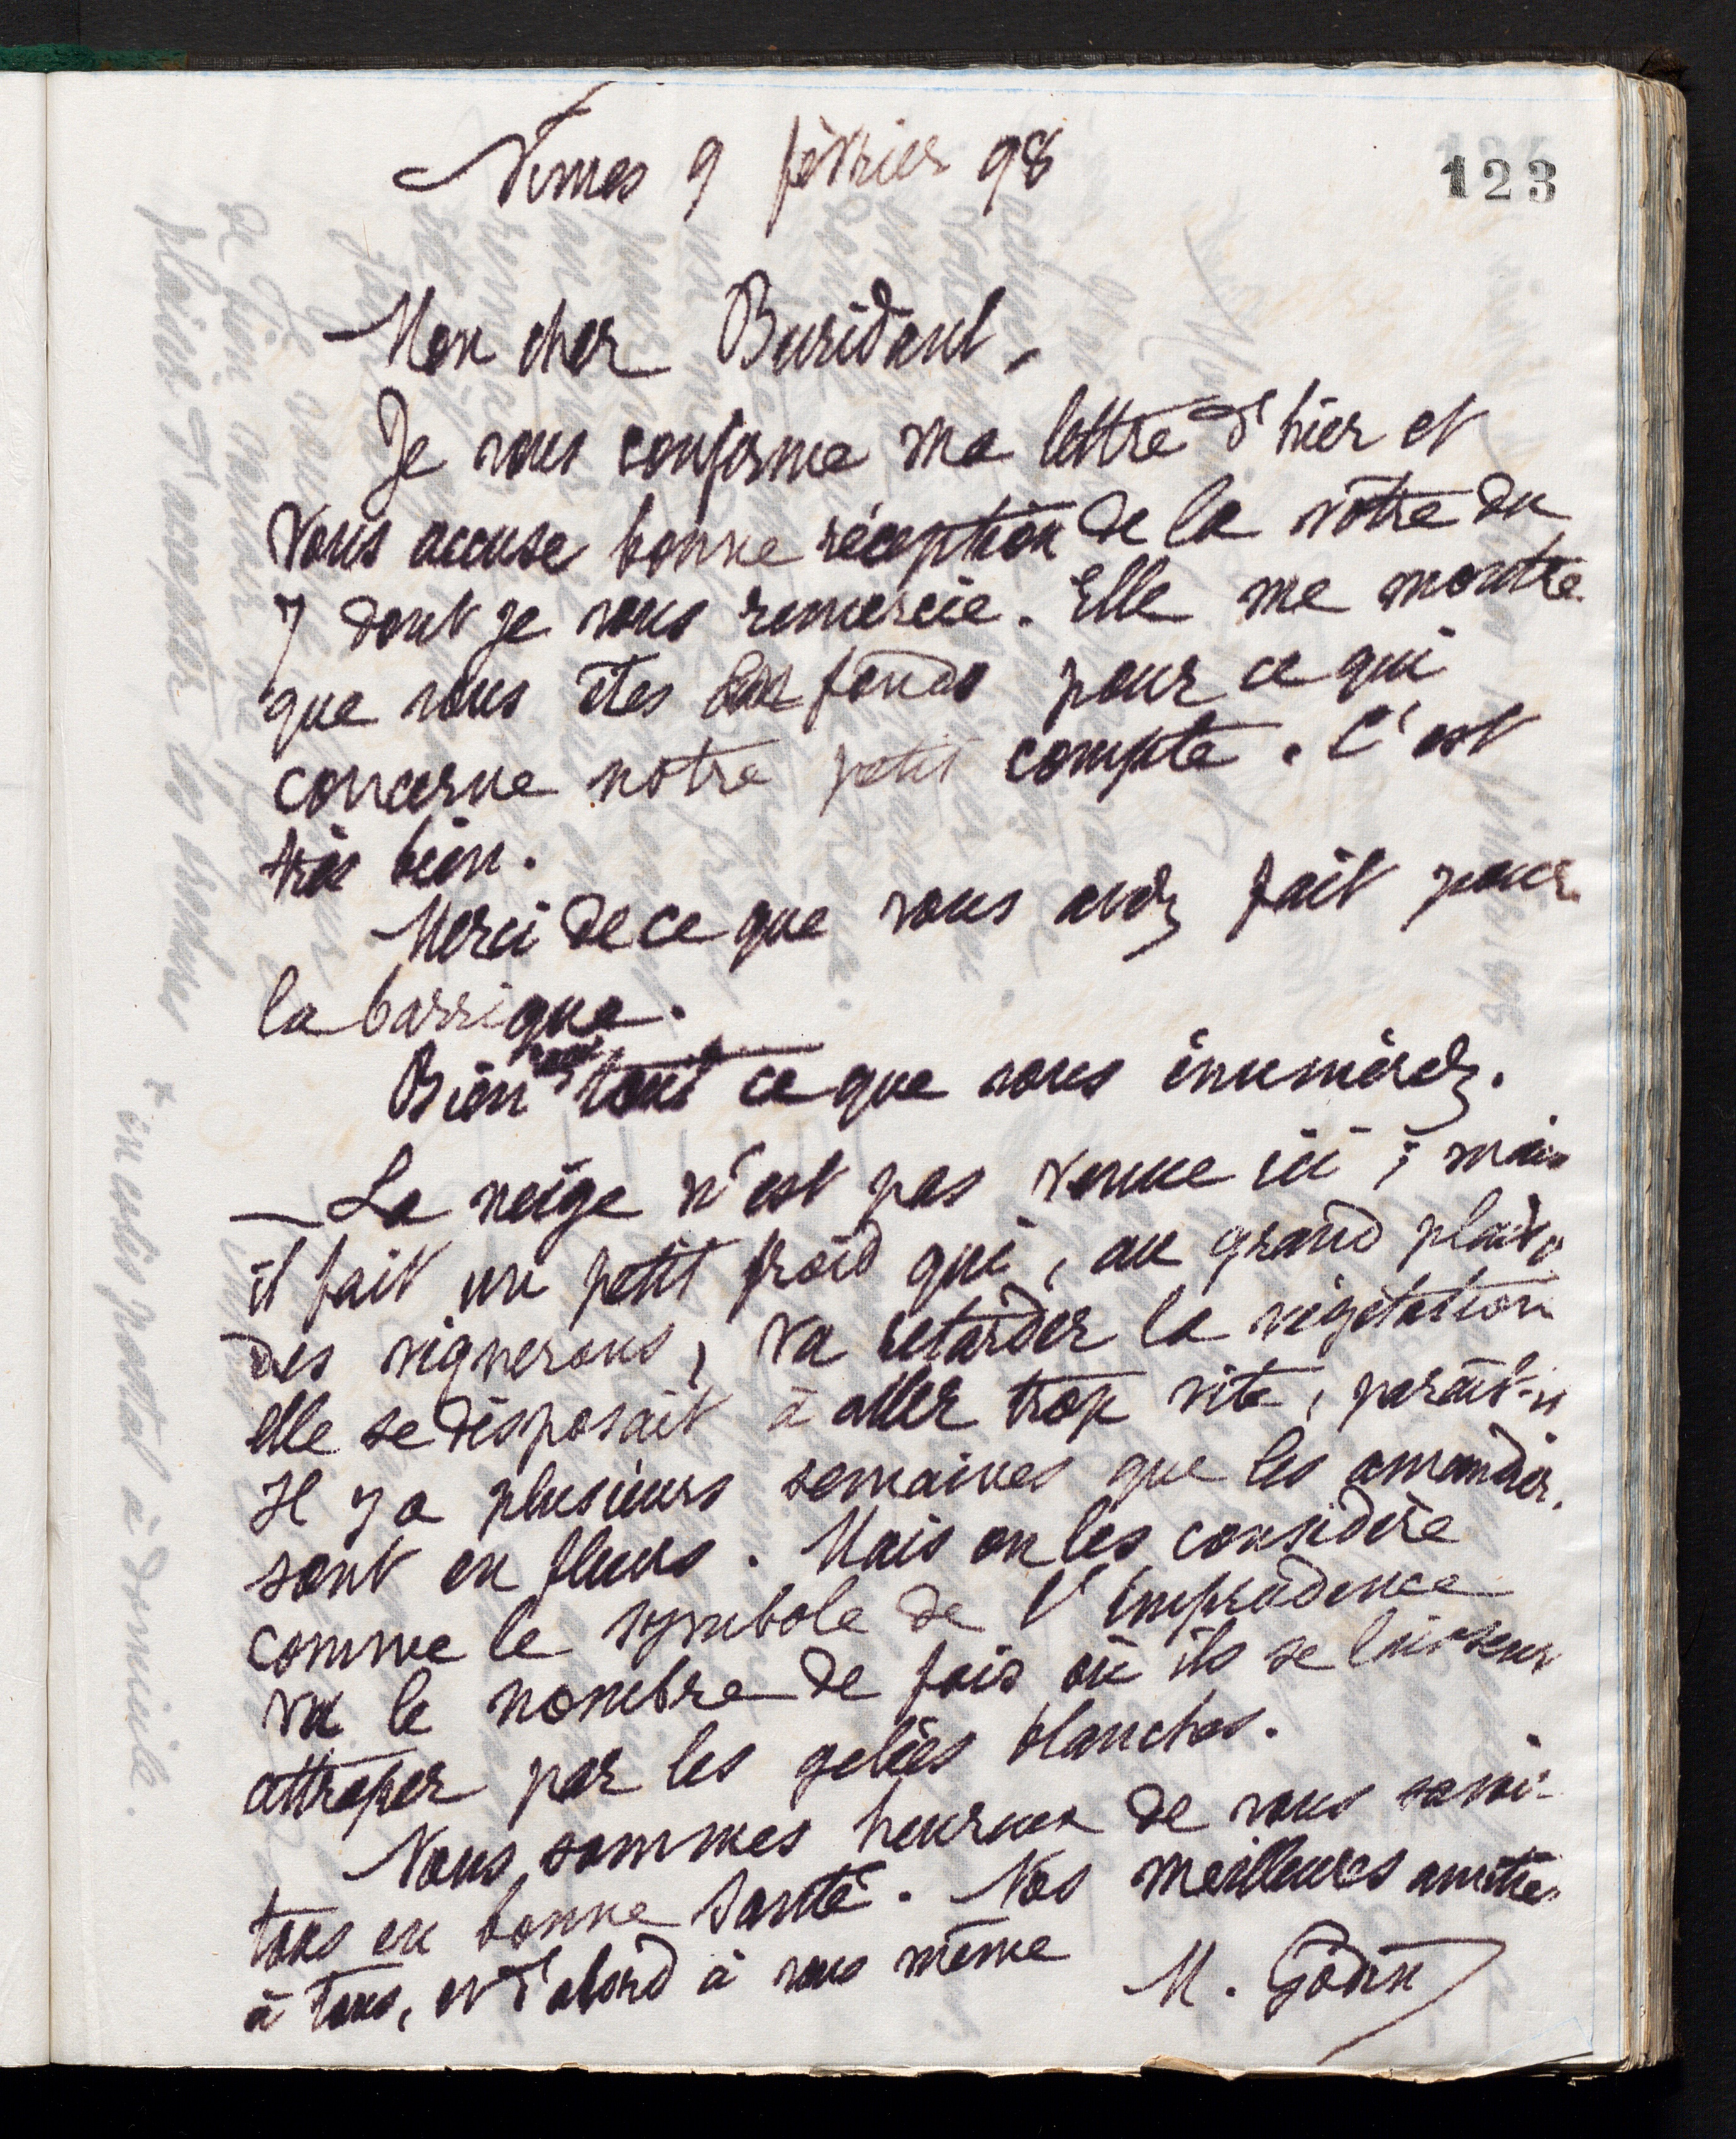 Nîmes 9 février 98
123
Mon cher Buridant,
Je vous confirme ma lettre d'hier et
vous accuse bonne réception de la vôtre du
7 dont je vous remercie. Elle me montre
que vous êtes en fonds pour ce qui
concerne notre petit compte. C'est
très bien.
Merci de ce que vous avez fait pour
la barrique.
Bien tout ce que vous énumérez.
La neige n'est pas venue ici ; mais
il fait un petit froid qui, au grand plaisir
des vignerons, va retarder la végétation
elle se disposait à aller trop vite, paraît-il
Il y a plusieurs semaines que les amandiers
sont en fleurs. Mais on les considère
comme le symbole de l'imprudence
vu le nombre de fois où ils se laissent
attraper par les gelées blanches.
Nous sommes heureux de vous savoir
tous en bonne santé. Nos meilleures amitiés
à tous, et d'abord à vous même
M. Godin